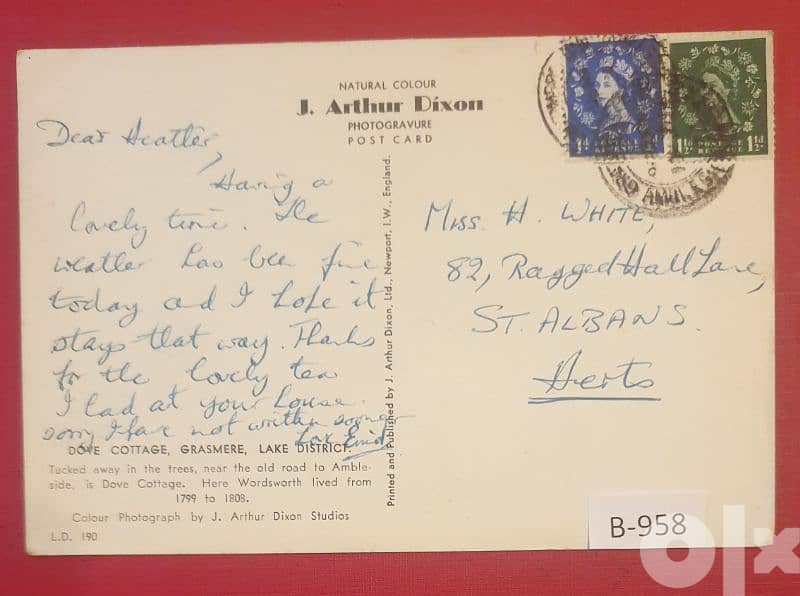 NATURAL COLOUR
J. Arthur Dixon
PHOTOGRAVURE
POST CARD
Dear Heather,
Having a
lovely time. The
weather has been fine
today and I hope it
stays that way. Thanks
for the lovely tea
I had at your house.
sorry I have not written sooner
Love Enid
DOVE COTTAGE, GRASMERE, LAKE DISTRICT.
Tucked away in the trees, near the old road to Amble-
side, is Dove Cottage. Here Wordsworth lived from
1799 to 1808.
Colour Photograph by J. Arthur Dixon Studios
L.D. 190
Printed and Published by J. Arthur Dixon, Ltd., Newport, I.W., England.
1d POSTAGE REVENUE
1½d POSTAGE REVENUE 1½d
MISS. H. WHITE,
82, Ragged Hall Lane,
ST. ALBANS.
Herts
B-958
olx